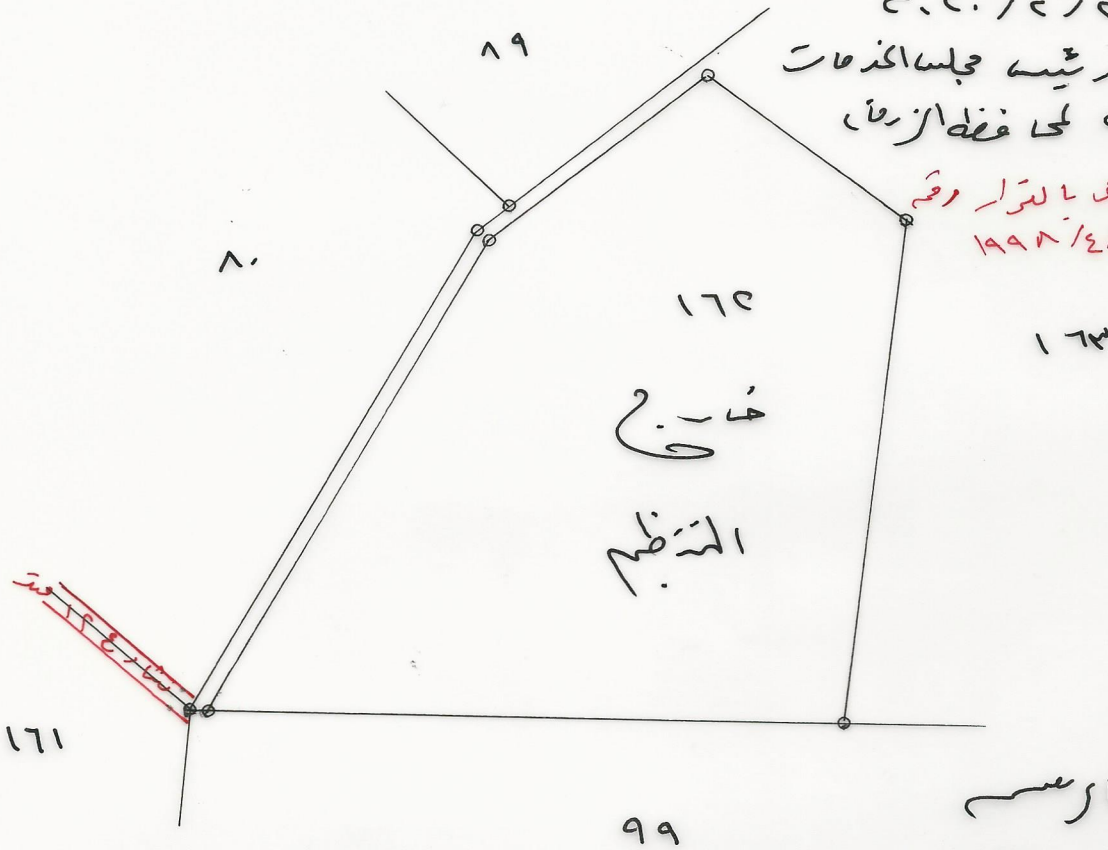 ٨٩
رئيس مجلس الخدمات
لمحافظة الزرقاء
بالقرار رقم
١٩٩٨/٤
٨٠
١٦٢
١٦٣
خارج
التنظيم
شارع ١٢ متر
١٦١
٩٩